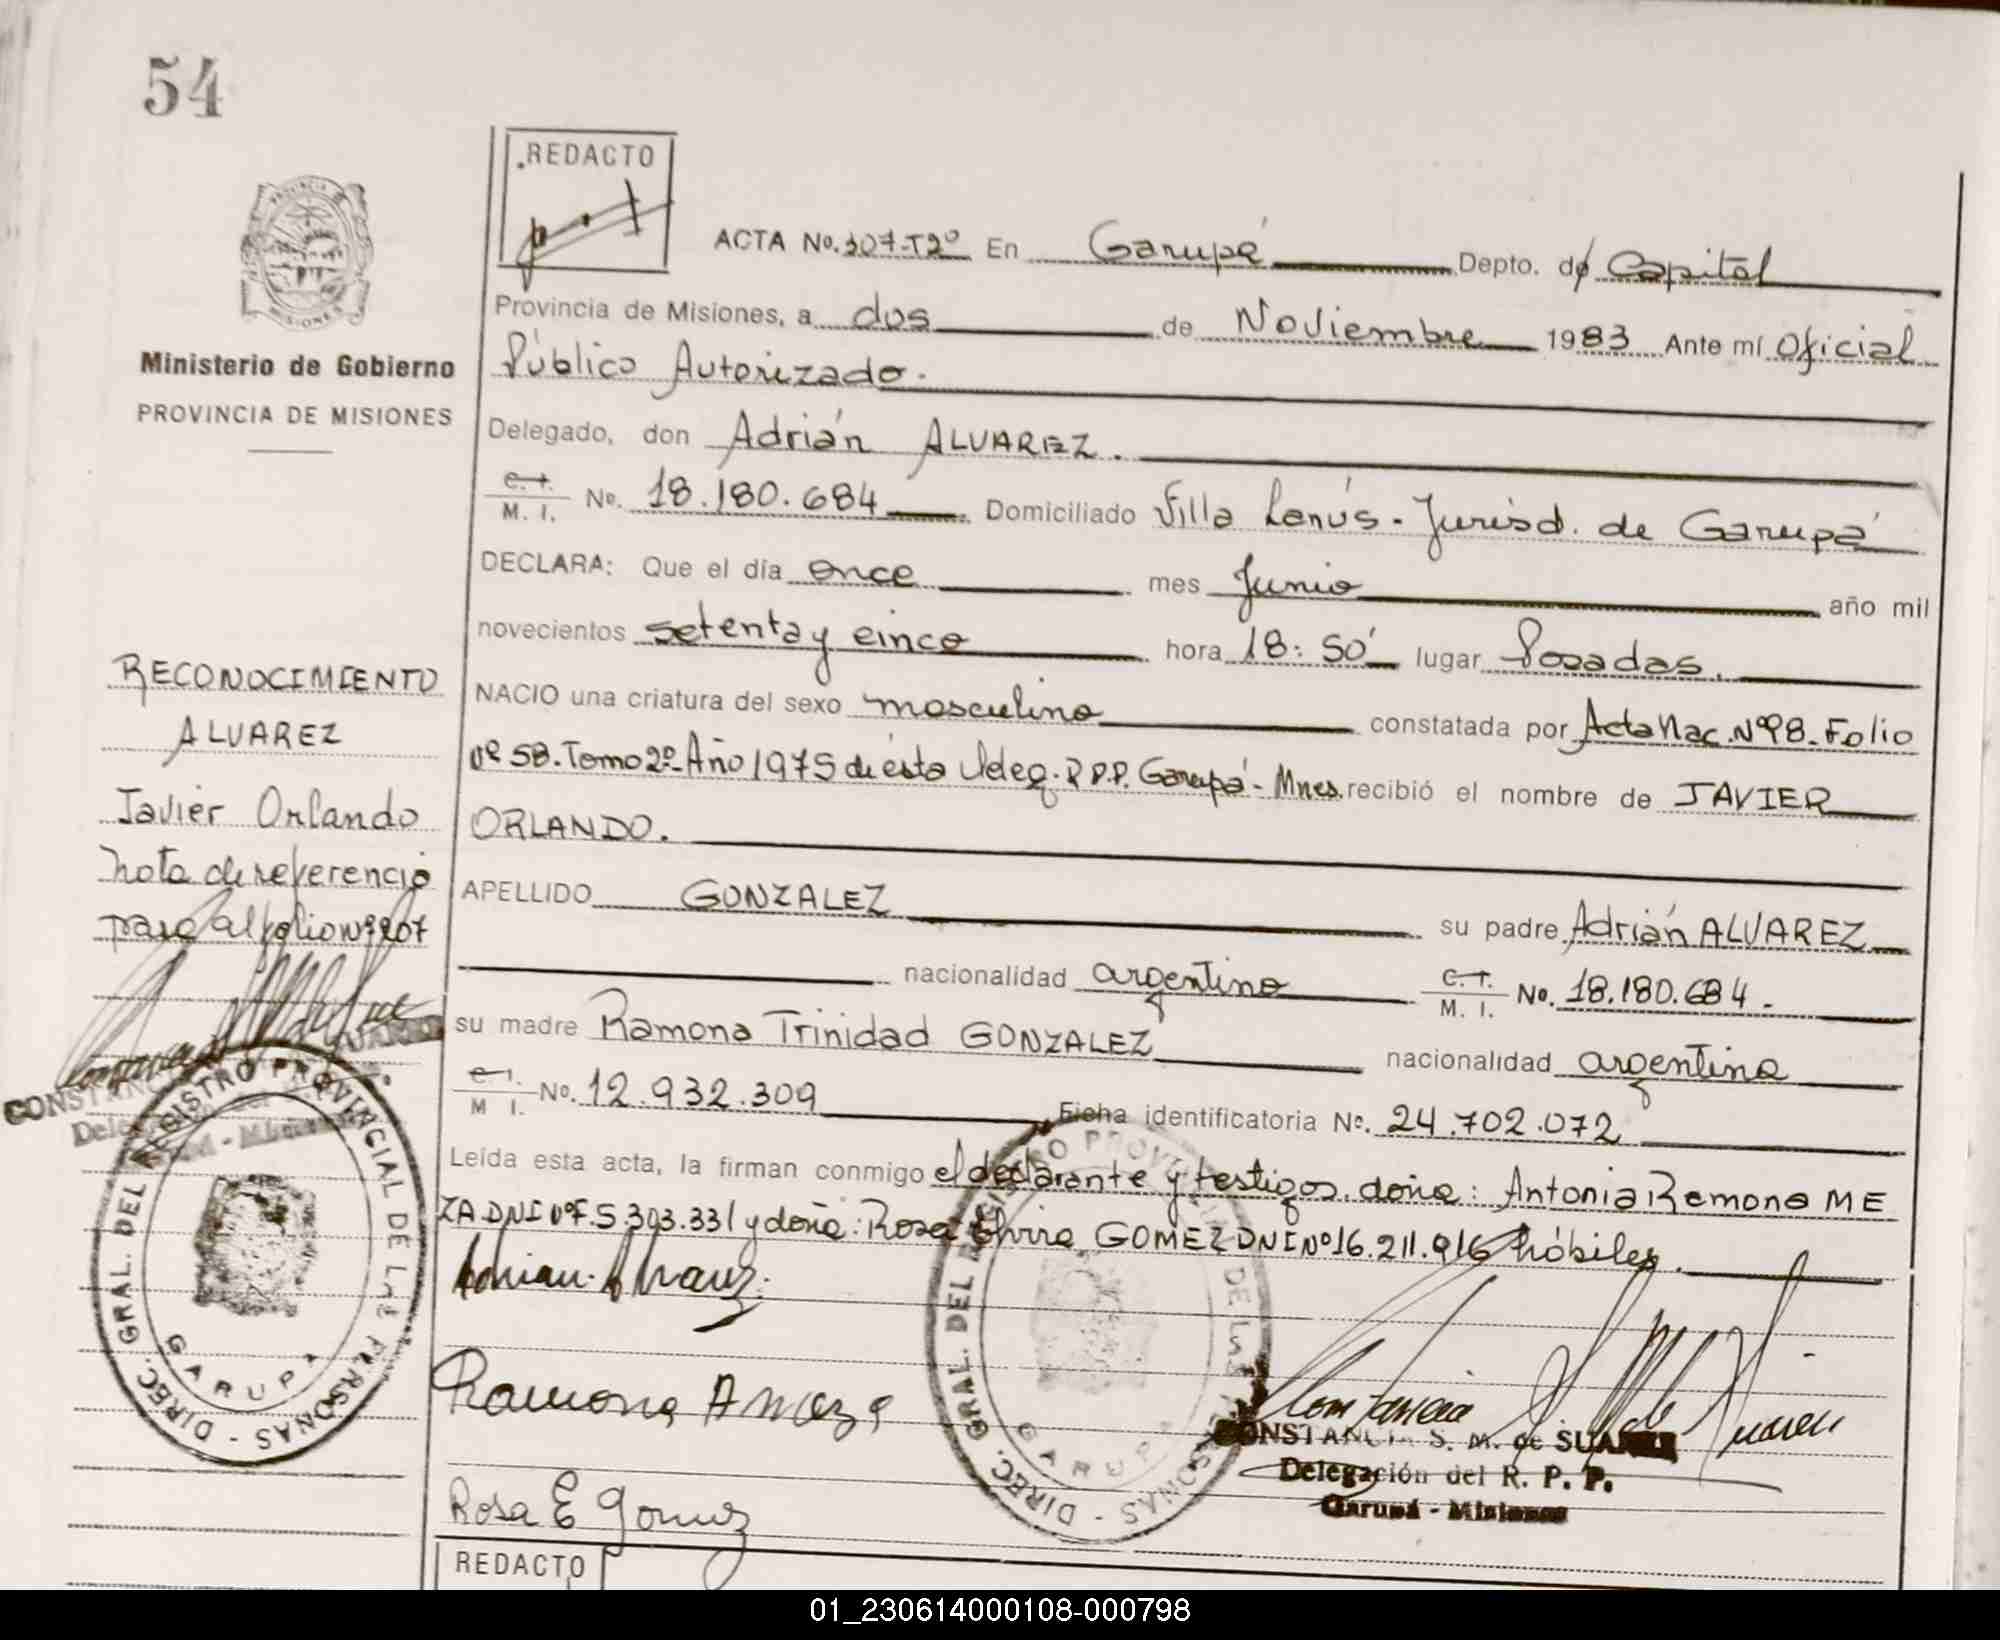 54
REDACTO
PROVINCIA DE
MISIONES
Ministerio de Gobierno
PROVINCIA DE MISIONES
RECONOCIMIENTO
ALVAREZ
Javier Orlando
Nota de referencia
pasa al folio Nº 207
DIREC. GRAL. DEL REGISTRO PROVINCIAL DE LAS PERSONAS
GARUPA
ACTA No. 307-T2º En Garupá Depto. de Capital
Provincia de Misiones, a dos de Noviembre 1983 Ante mí Oficial
Público Autorizado.
Delegado, don Adrián ALVAREZ.
C. I. / M. I. No. 18.180.684 Domiciliado Villa Lanús - Jurisd. de Garupá
DECLARA: Que el día once mes Junio año mil
novecientos setenta y cinco hora 18:50' lugar Posadas.
NACIO una criatura del sexo masculino constatada por Acta Nac. Nº 98. Folio
Nº 58. Tomo 2º Año 1975 de ésta Deleg. R.P.P. Garupá - Mnes. recibió el nombre de JAVIER
ORLANDO.
APELLIDO GONZALEZ su padre Adrián ALVAREZ
nacionalidad argentina C. I. / M. I. No. 18.180.684.
su madre Ramona Trinidad GONZALEZ nacionalidad argentina
C. I. / M. I. No. 12.932.309 Ficha identificatoria No. 24.702.072
Leída esta acta, la firman conmigo el declarante y testigos doña: Antonia Ramona ME
ZA DNI Nº F.5.303.331 y doña: Rosa Elvira GOMEZ DNI Nº 16.211.916 hábiles.
Adrian Alvarez.
Ramona A Meza
Rosa E Gomez
DIREC. GRAL. DEL REGISTRO PROVINCIAL DE LAS PERSONAS
GARUPA
CONSTANCIA S. M. de SUAREZ
Delegación del R. P. P.
Garupá - Misiones
REDACTO
01_230614000108-000798